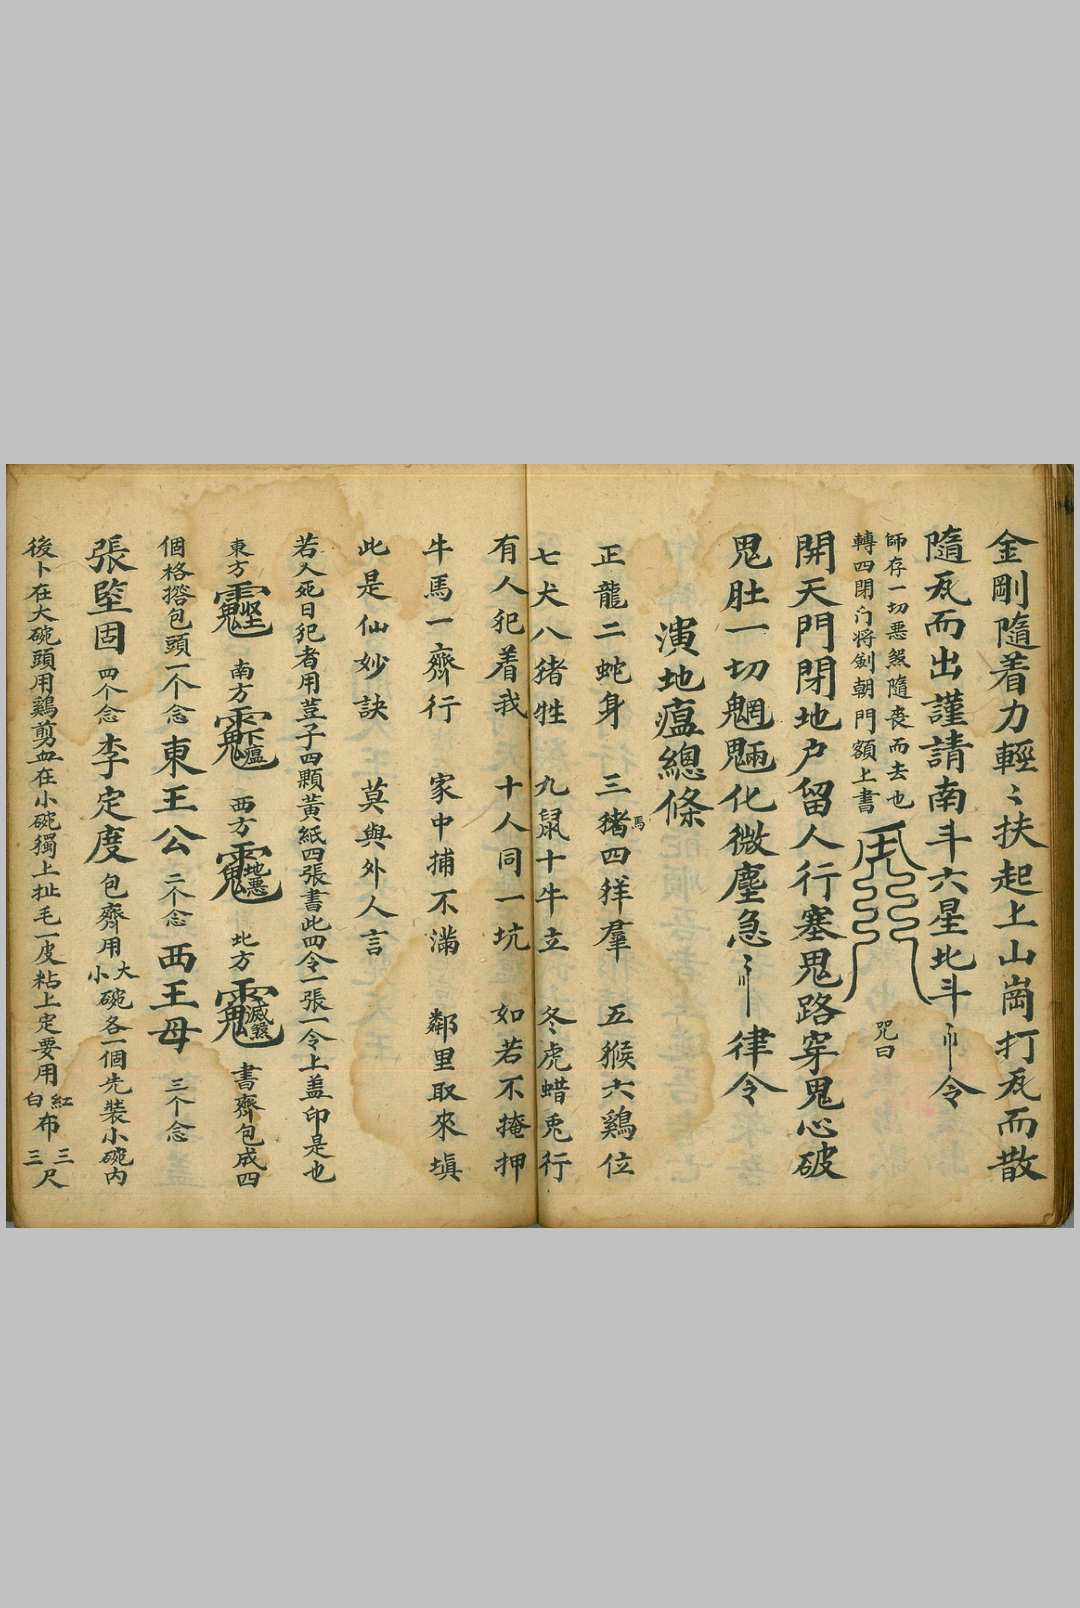 金剛隨着力輕〻扶起上山崗打瓦而散
隨瓦而出謹請南斗六星北斗 令
師存一切惡煞隨喪而去也
轉四閉门將劍朝門額上書
咒曰
開天門閉地户留人行塞鬼路穿鬼心破
鬼肚一切魍魎化微塵急〻 律令
演地瘟總條
正龍二蛇身 三猪四羊羣 五猴六鷄位
馬
七犬八猪牲 九鼠十牛立 冬虎蜡兎行
有人犯着我 十人同一坑 如若不掩押
牛馬一齊行 家中捕不滿 鄰里取來填
此是仙妙訣 莫與外人言
若人死日犯者用荳子四顆黃紙四張書此四令一張一令上盖印是也
東方 南方 西方 北方 書齊包成四
個格 包頭一个念東王公二个念西王母三个念
張堅固四个念李定度包齊用大小碗各一個先裝小碗内
後卜在大碗頭用鷄剪血在小碗獨上扯毛一皮粘上定要用紅白布三三尺